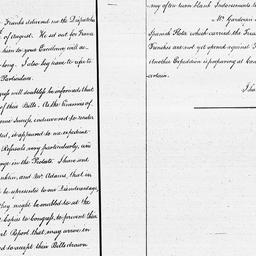 Franks delivered me the Dispatche
of August. He set out for Franc
him to your Excellency will ac-
long. I also beg leave to refer to
Particulars.
ess will doubtless be informed that
of their Bills. As the Enemies of
some Success, endeavoured to render
ted, it appeared to me expedient
Refusals, very particularly, in
ge in the Protests. I have sent
klin, and Mr. Adams, that in
be represented to our Disadvantage,
they might be enabled to set the
Copies to Congress, to prevent their
Report that may arrive
to accept their Bills drawn
my often blank Indorsements to
Mr. Gardoqui
Spanish Fleet which carried the Troops
Trenches are not yet opened against
Another Expedition is preparing at Ca
certain.
I ha